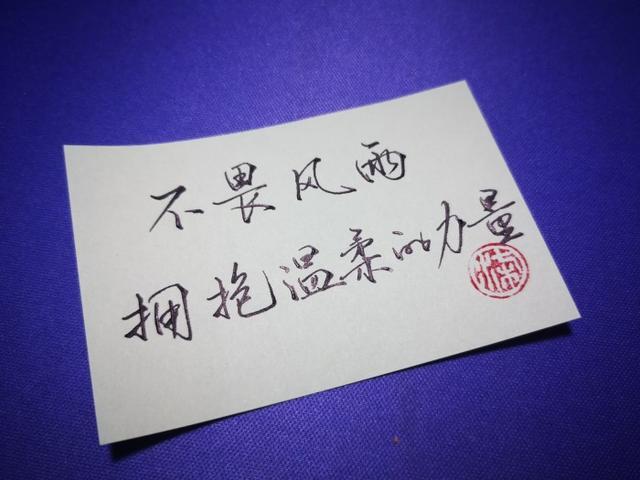 不畏风雨
拥抱温柔的力量